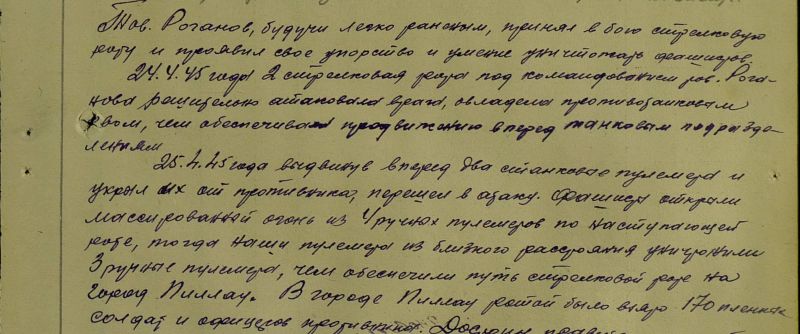 Тов. Роганов, будучи легко раненым, принял в бою стрелковую
роту и проявил свое упорство и умение уничтожать фашистов.
24.4.45 года 2 стрелковая рота под командованием тов. Рога-
нова решительно атаковала врага, овладела противотанковым
рвом, чем обеспечивая продвижению вперед танковым подразде-
лениям
25.4.45 года выдвинув вперед два станковые пулемета и
укрыл их от противника, перешел в атаку. Фашисты открыли
массированный огонь из 4 ручных пулеметов по наступающей
роте, тогда наши пулемета из близкого расстояния уничтожили
3 ручные пулемета, чем обеспечили путь стрелковой роте на
город Пиллау. В городе Пиллау ротой было взято 170 пленных
солдат и офицеров противника. Достоин